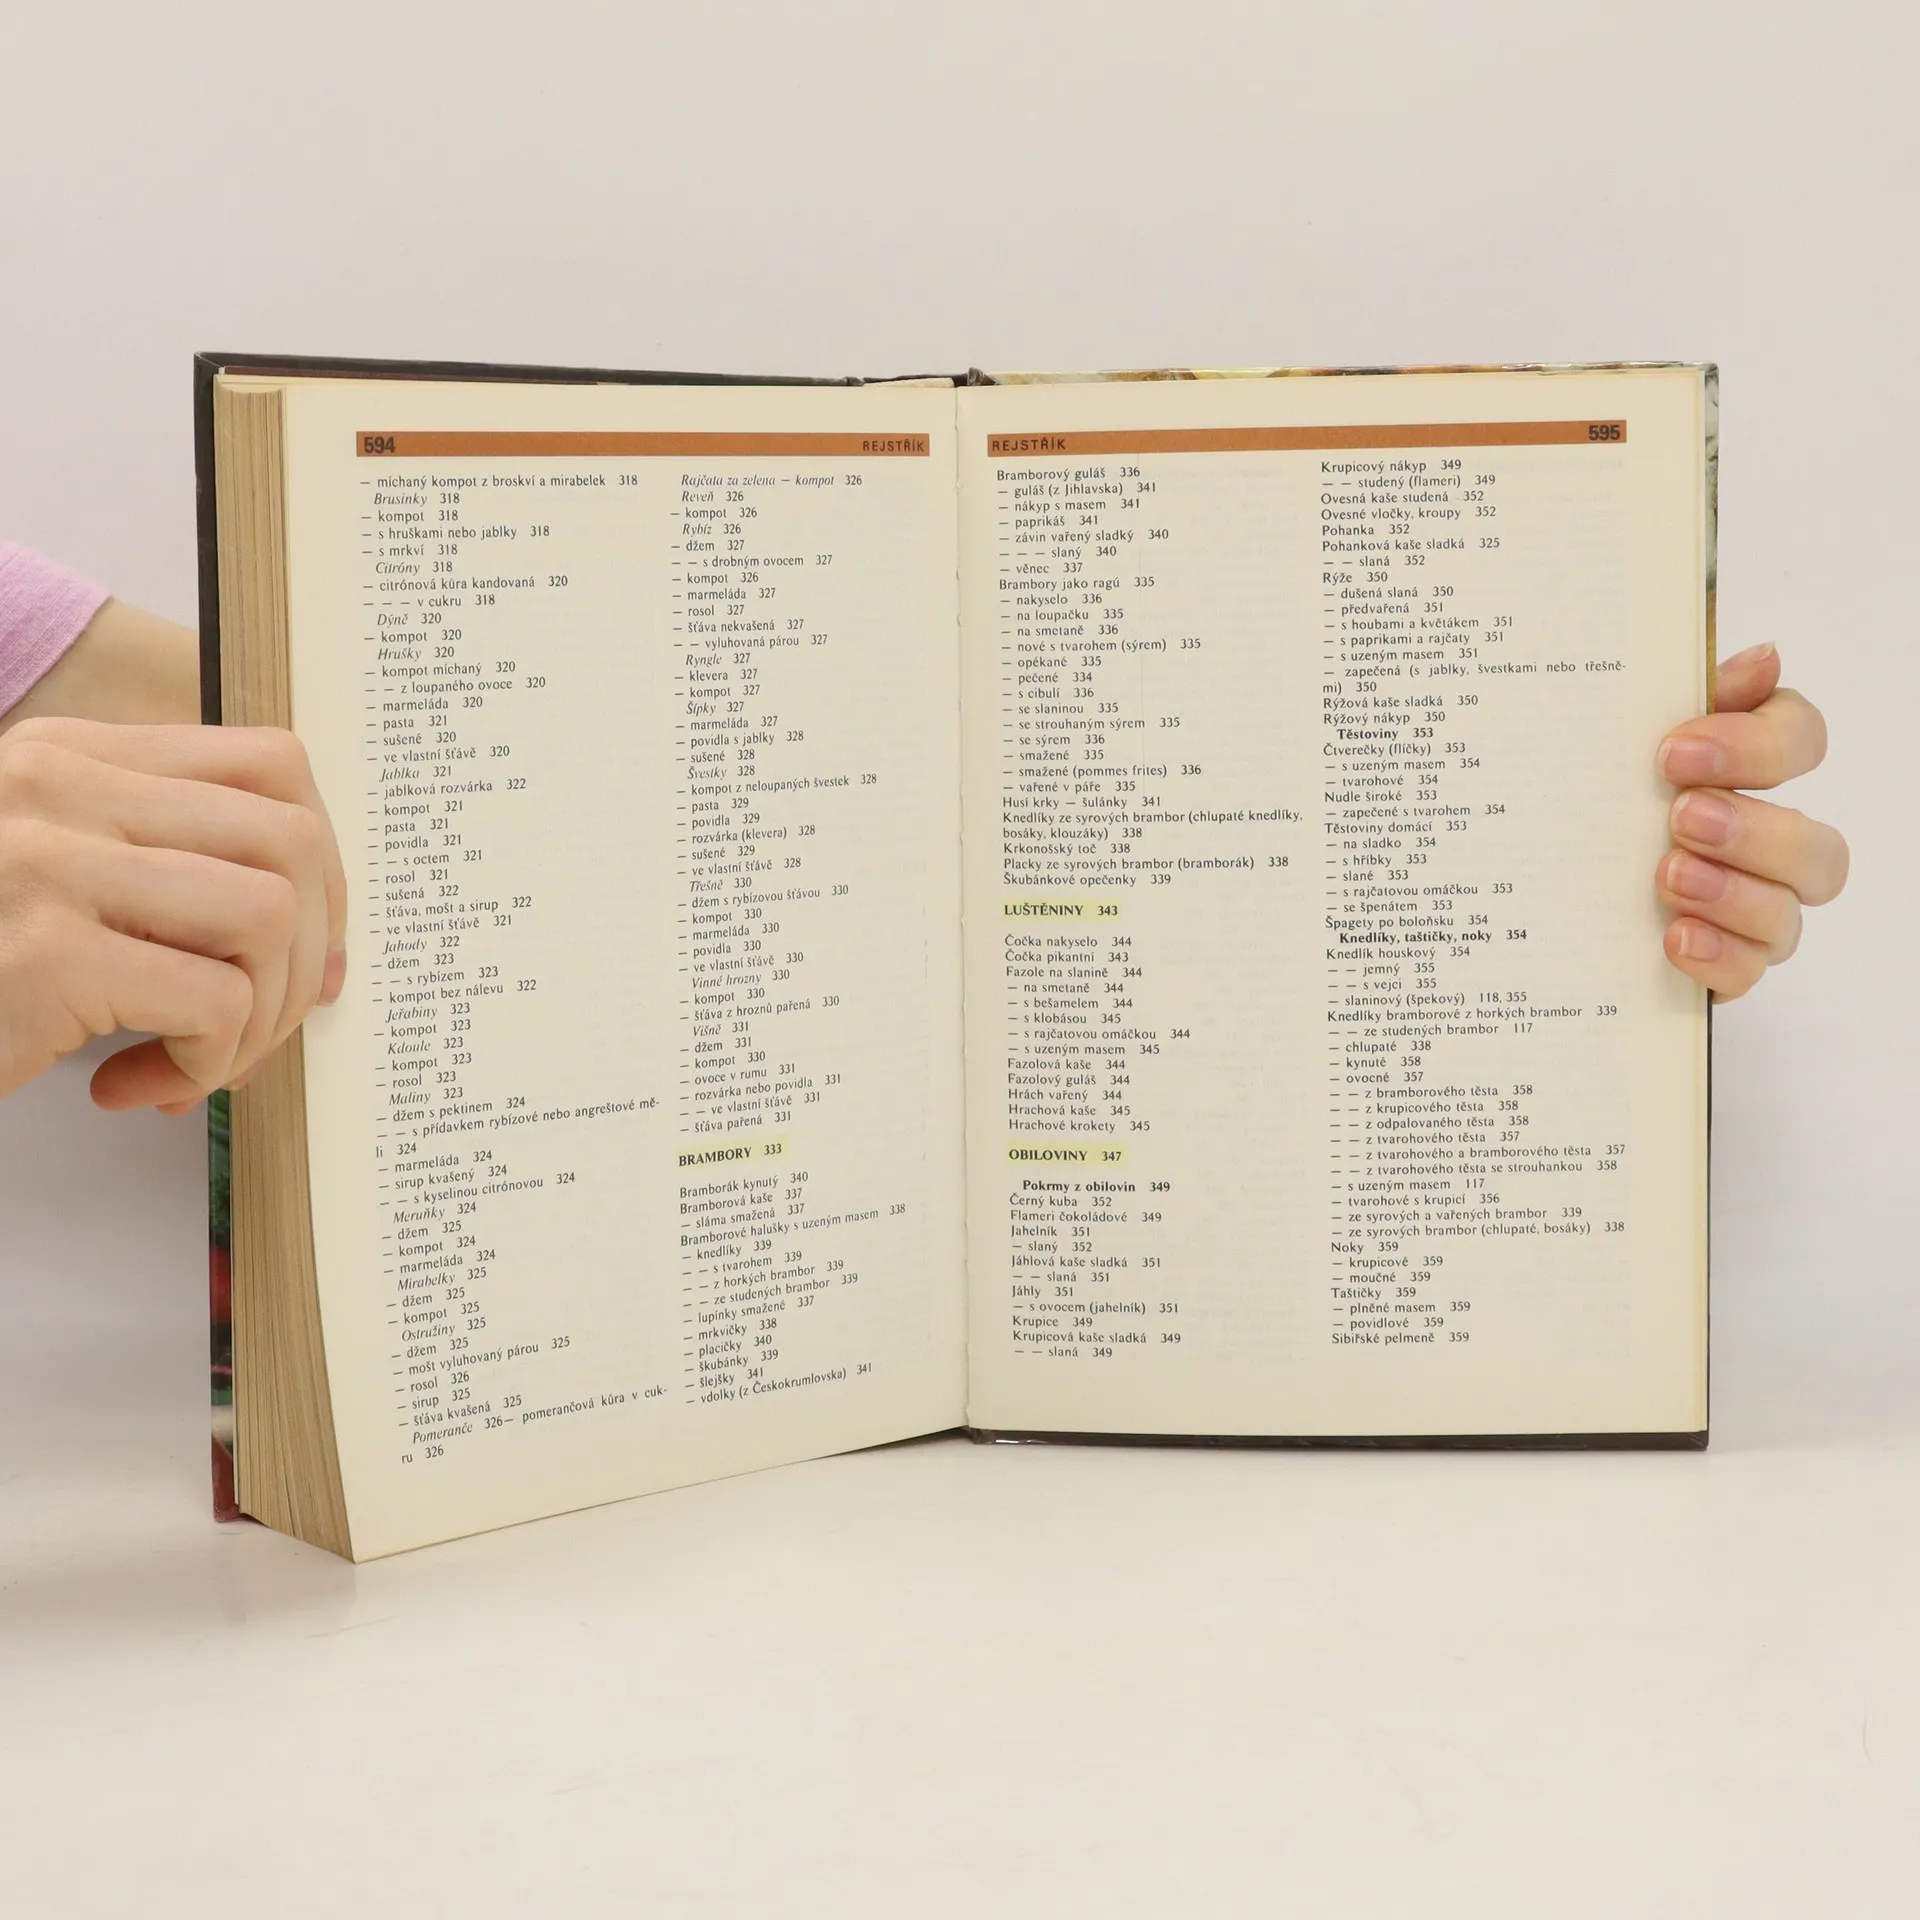 594
REJSTŘÍK
— míchaný kompot z broskví a mirabelek 318
Brusinky 318
— kompot 318
— s hruškami nebo jablky 318
— s mrkví 318
Citróny 318
— citrónová kůra kandovaná 320
— — — v cukru 318
Dýně 320
— kompot 320
Hrušky 320
— kompot míchaný 320
— — z loupaného ovoce 320
— marmeláda 320
— pasta 321
— sušené 320
— ve vlastní šťávě 320
Jablka 321
— jablková rozvárka 322
— kompot 321
— pasta 321
— povidla 321
— — s octem 321
— rosol 321
— sušená 322
— šťáva, mošt a sirup 322
— ve vlastní šťávě 321
Jahody 322
— džem 323
— — s rybízem 323
— kompot bez nálevu 322
Jeřabiny 323
— kompot 323
Kdoule 323
— kompot 323
— rosol 323
Maliny 323
— džem s pektinem 324
— — s přídavkem rybízové nebo angreštové mě-
li 324
— marmeláda 324
— sirup kvašený 324
— — s kyselinou citrónovou 324
Meruňky 324
— džem 325
— kompot 324
— marmeláda 324
Mirabelky 325
— džem 325
— kompot 325
Ostružiny 325
— džem 325
— mošt vyluhovaný párou 325
— rosol 326
— sirup 325
— šťáva kvašená 325
Pomeranče 326— pomerančová kůra v cuk-
ru 326
Rajčata za zelena — kompot 326
Reveň 326
— kompot 326
Rybíz 326
— džem 327
— — s drobným ovocem 327
— kompot 326
— marmeláda 327
— rosol 327
— šťáva nekvašená 327
— — vyluhovaná párou 327
Ryngle 327
— klevera 327
— kompot 327
Šípky 327
— marmeláda 327
— povidla s jablky 328
— sušené 328
Švestky 328
— kompot z neloupaných švestek 328
— pasta 329
— povidla 329
— rozvárka (klevera) 328
— sušené 329
— ve vlastní šťávě 328
Třešně 330
— džem s rybízovou šťávou 330
— kompot 330
— marmeláda 330
— povidla 330
— ve vlastní šťávě 330
Vinné hrozny 330
— kompot 330
— šťáva z hroznů pařená 330
Višně 331
— džem 331
— kompot 330
— ovoce v rumu 331
— rozvárka nebo povidla 331
— — ve vlastní šťávě 331
— šťáva pařená 331
BRAMBORY 333
Bramborák kynutý 340
Bramborová kaše 337
— sláma smažená 337
Bramborové halušky s uzeným masem 338
— knedlíky 339
— — s tvarohem 339
— — z horkých brambor 339
— — ze studených brambor 339
— lupínky smažené 337
— mrkvičky 338
— placičky 340
— škubánky 339
— šlejšky 341
— vdolky (z Českokrumlovska) 341
REJSTŘÍK
595
Bramborový guláš 336
— guláš (z Jihlavska) 341
— nákyp s masem 341
— paprikáš 341
— závin vařený sladký 340
— — — slaný 340
— věnec 337
Brambory jako ragú 335
— nakyselo 336
— na loupačku 335
— na smetaně 336
— nové s tvarohem (sýrem) 335
— opékané 335
— pečené 334
— s cibulí 336
— se slaninou 335
— se strouhaným sýrem 335
— se sýrem 336
— smažené 335
— smažené (pommes frites) 336
— vařené v páře 335
Husí krky — šulánky 341
Knedlíky ze syrových brambor (chlupaté knedlíky,
bosáky, klouzáky) 338
Krkonošský toč 338
Placky ze syrových brambor (bramborák) 338
Škubánkové opečenky 339
LUŠTĚNINY 343
Čočka nakyselo 344
Čočka pikantní 343
Fazole na slanině 344
— na smetaně 344
— s bešamelem 344
— s klobásou 345
— s rajčatovou omáčkou 344
— s uzeným masem 345
Fazolová kaše 344
Fazolový guláš 344
Hrách vařený 344
Hrachová kaše 345
Hrachové krokety 345
OBILOVINY 347
Pokrmy z obilovin 349
Černý kuba 352
Flameri čokoládové 349
Jahelník 351
— slaný 352
Jáhlová kaše sladká 351
— — slaná 351
Jáhly 351
— s ovocem (jahelník) 351
Krupice 349
Krupicová kaše sladká 349
— — slaná 349
Krupicový nákyp 349
— — studený (flameri) 349
Ovesná kaše studená 352
Ovesné vločky, kroupy 352
Pohanka 352
Pohanková kaše sladká 325
— — slaná 352
Rýže 350
— dušená slaná 350
— předvařená 351
— s houbami a květákem 351
— s paprikami a rajčaty 351
— s uzeným masem 351
— zapečená (s jablky, švestkami nebo třešně-
mi) 350
Rýžová kaše sladká 350
Rýžový nákyp 350
Těstoviny 353
Čtverečky (flíčky) 353
— s uzeným masem 354
— tvarohové 354
Nudle široké 353
— zapečené s tvarohem 354
Těstoviny domácí 353
— na sladko 354
— s hříbky 353
— slané 353
— s rajčatovou omáčkou 353
— se špenátem 353
Špagety po boloňsku 354
Knedlíky, taštičky, noky 354
Knedlík houskový 354
— — jemný 355
— — s vejci 355
— slaninový (špekový) 118, 355
Knedlíky bramborové z horkých brambor 339
— — ze studených brambor 117
— chlupaté 338
— kynuté 358
— ovocné 357
— — z bramborového těsta 358
— — z krupicového těsta 358
— — z odpalovaného těsta 358
— — z tvarohového těsta 357
— — z tvarohového a bramborového těsta 357
— — z tvarohového těsta se strouhankou 358
— s uzeným masem 117
— tvarohové s krupicí 356
— ze syrových a vařených brambor 339
— ze syrových brambor (chlupaté, bosáky) 338
Noky 359
— krupicové 359
— moučné 359
Taštičky 359
— plněné masem 359
— povidlové 359
Sibiřské pelmeně 359